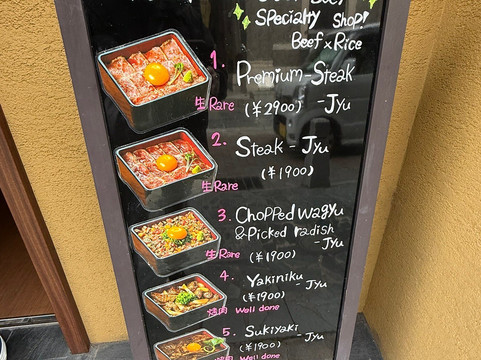 Specialty Shop!
Beef×Rice
1. Premium-Steak
生Rare (¥2900) -Jyu
2. Steak - Jyu
(¥1900)
生Rare
3. Chopped Wagyu
&Picked radish
-Jyu
生Rare (¥1900)
4. Yakiniku
(¥1900) -Jyu
焼肉 Well done
5. Sukiyaki
(¥1900) -Jyu
Well done